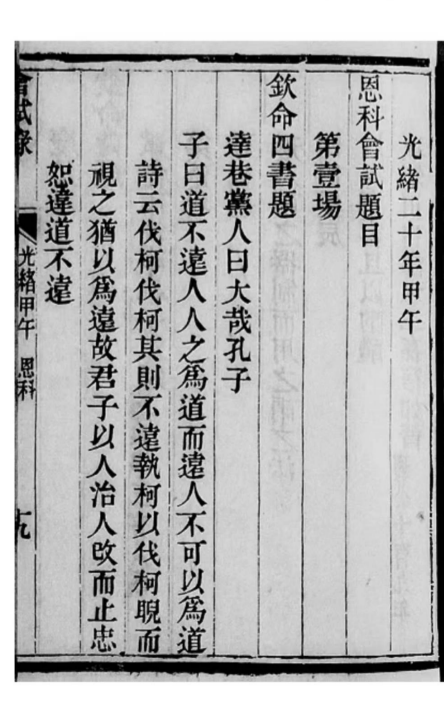 光緒二十年甲午
恩科會試題目
第壹場
欽命四書題
達巷黨人曰大哉孔子
子曰道不遠人人之爲道而遠人不可以爲道
詩云伐柯伐柯其則不遠執柯以伐柯睨而
視之猶以爲遠故君子以人治人改而止忠
恕違道不遠
會試錄
光緒甲午 恩科
十九